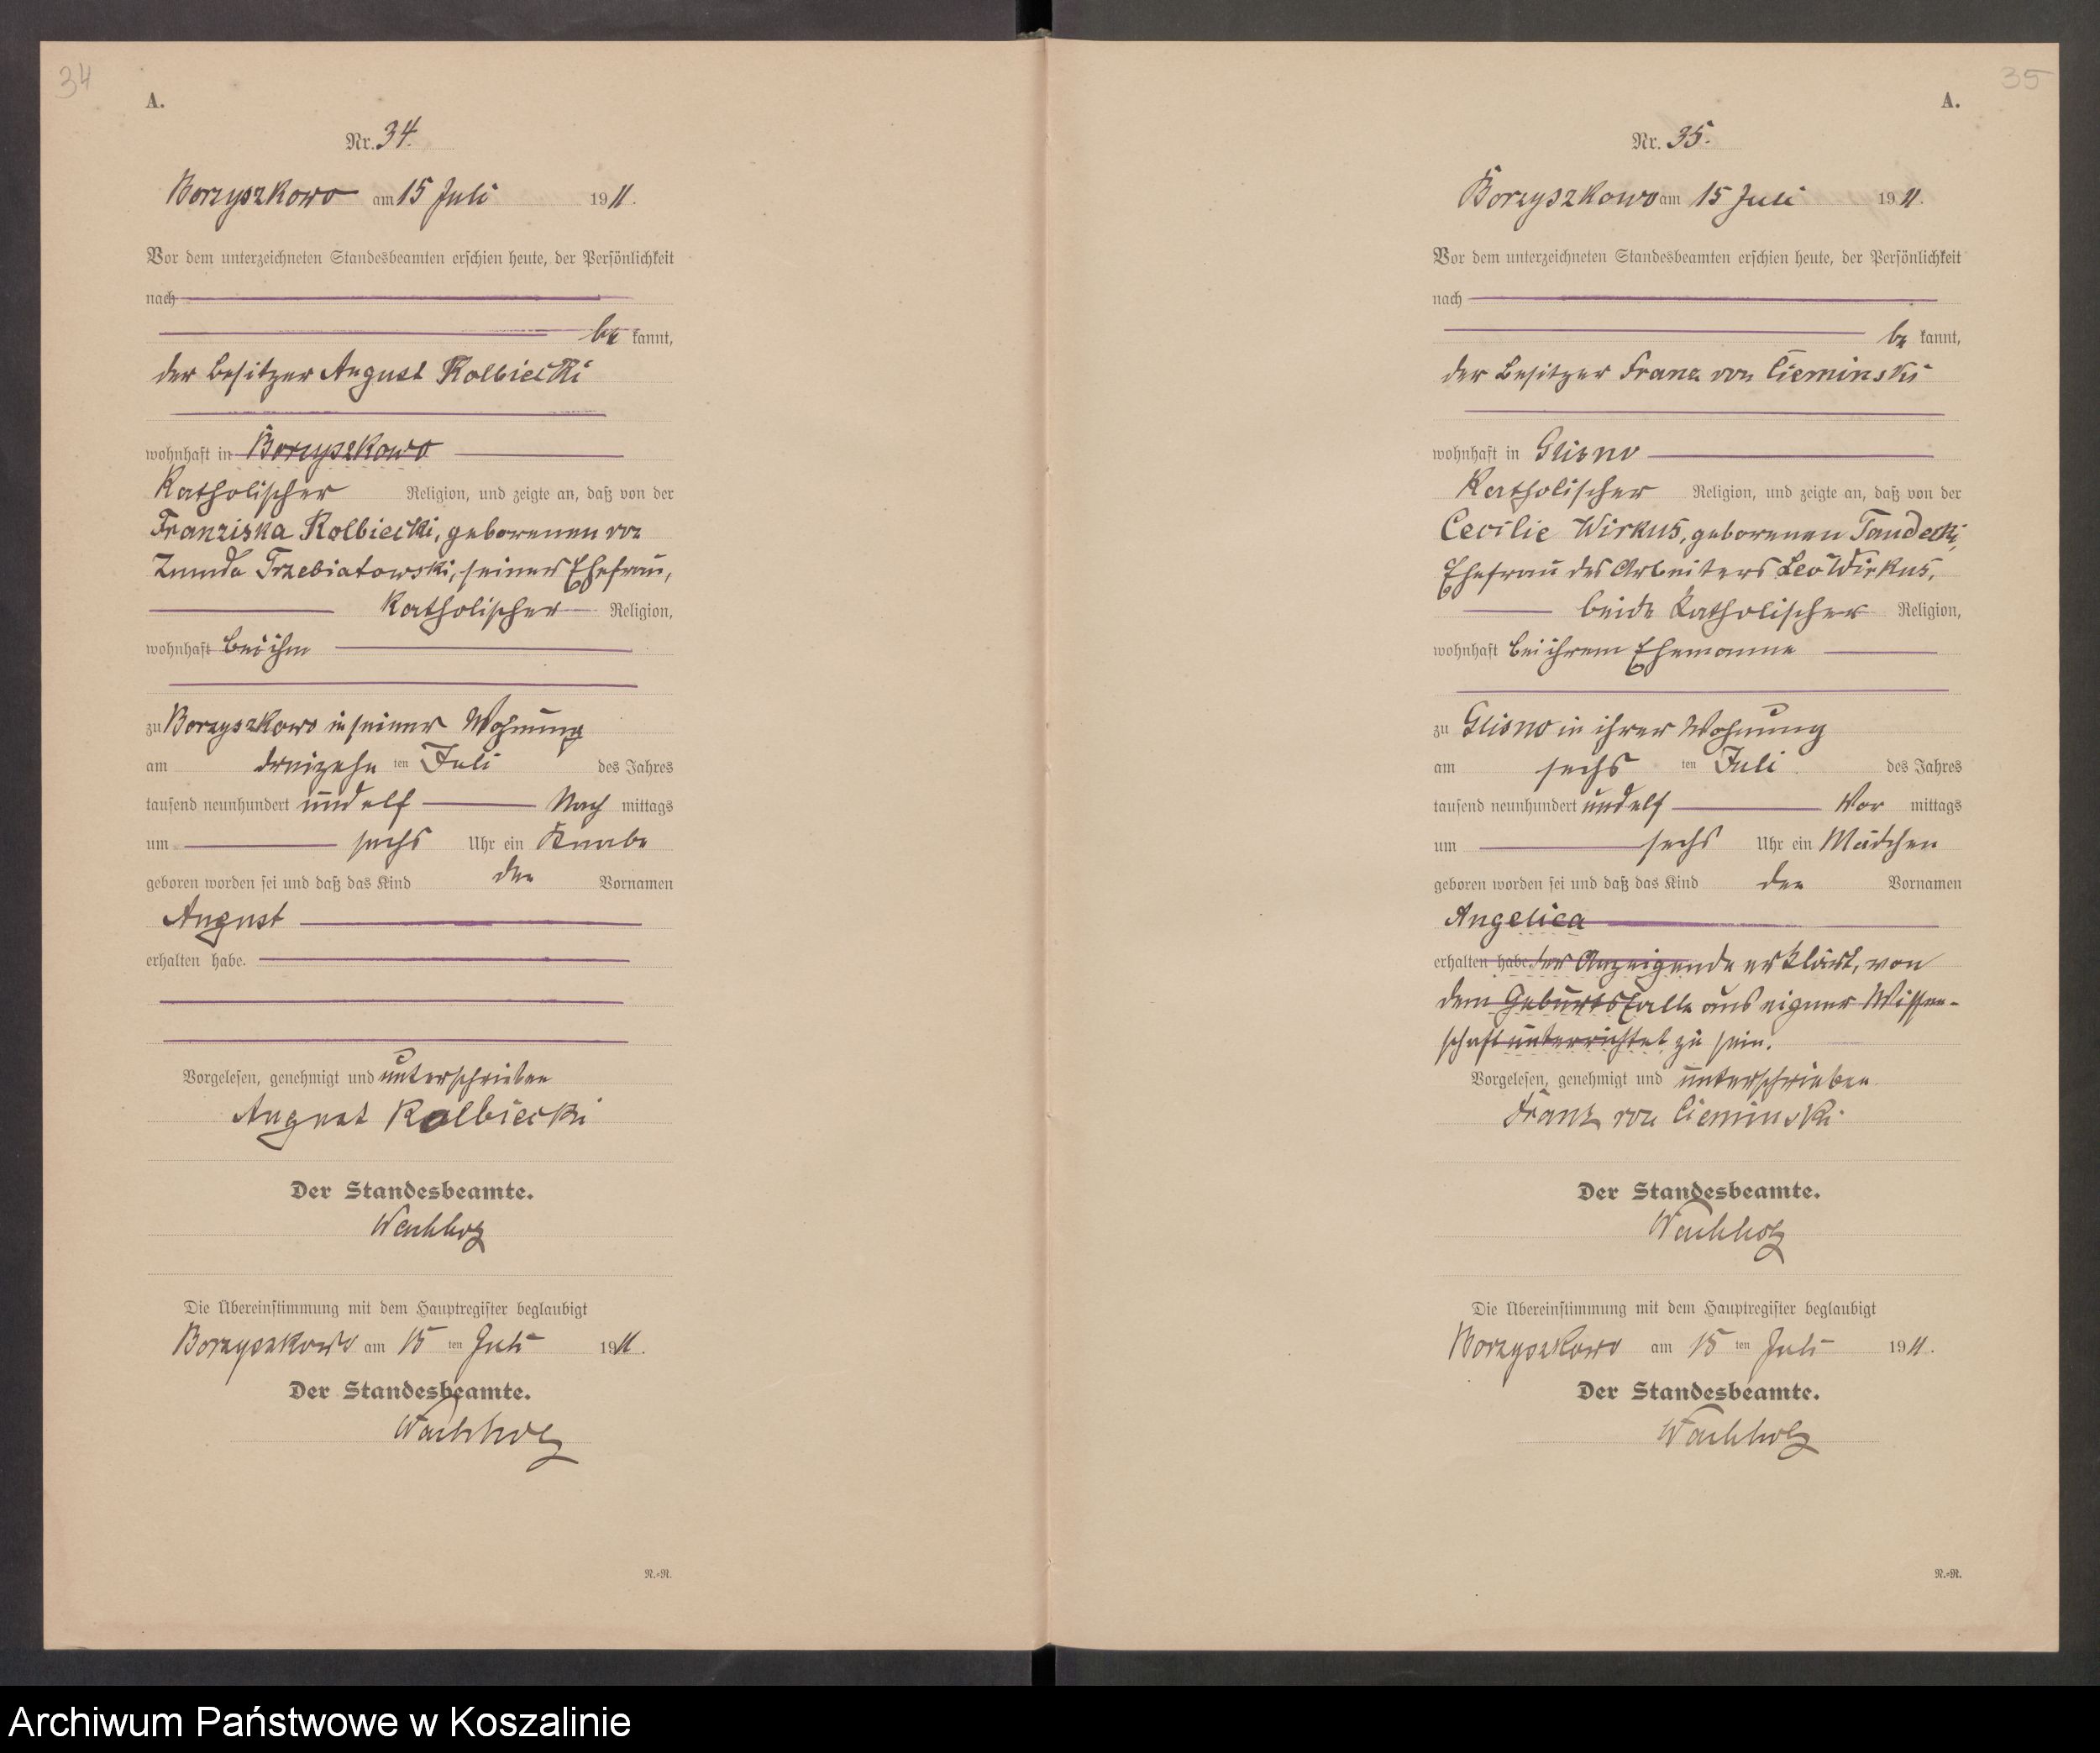 34
A.
Nr. 34.
Borzyszkowo am 15 Juli 1911.
Vor dem unterzeichneten Standesbeamten erschien heute, der Persönlichkeit
nach
be kannt,
der Besitzer August Kolbiecki
wohnhaft in Borzyszkowo
Katholischer Religion, und zeigte an, daß von der
Franziska Kolbiecki, geborenen von
Zmuda Trzebiatowski, seiner Ehefrau,
Katholischer Religion,
wohnhaft bei ihm
zu Borzyszkowo in seiner Wohnung
am dreizehn ten Juli des Jahres
tausend neunhundert und elf Nach mittags
um sechs Uhr ein Knabe
geboren worden sei und daß das Kind den Vornamen
August
erhalten habe.
Vorgelesen, genehmigt und unterschrieben
August Kolbiecki
Der Standesbeamte.
Wachholz
Die Übereinstimmung mit dem Hauptregister beglaubigt
Borzyszkowo am 15 ten Juli 1911.
Der Standesbeamte.
Wachholz
N.-N.
35
A.
Nr. 35.
Borzyszkowo am 15 Juli 1911.
Vor dem unterzeichneten Standesbeamten erschien heute, der Persönlichkeit
nach
be kannt,
der Besitzer Franz von Cieminski
wohnhaft in Glisno
Katholischer Religion, und zeigte an, daß von der
Cecilie Wirkus, geborenen Tandecki,
Ehefrau des Arbeiters Leo Wirkus,
beide Katholischer Religion,
wohnhaft bei ihrem Ehemanne
zu Glisno in ihrer Wohnung
am sechs ten Juli des Jahres
tausend neunhundert und elf Vor mittags
um sechs Uhr ein Mädchen
geboren worden sei und daß das Kind den Vornamen
Angelica
erhalten habe. der Anzeigende erklärt, von
dem Geburtsfalle aus eigner Wissen-
schaft unterrichtet zu sein.
Vorgelesen, genehmigt und unterschrieben
Franz von Cieminski
Der Standesbeamte.
Wachholz
Die Übereinstimmung mit dem Hauptregister beglaubigt
Borzyszkowo am 15 ten Juli 1911.
Der Standesbeamte.
Wachholz
N.-N.
Archiwum Państwowe w Koszalinie